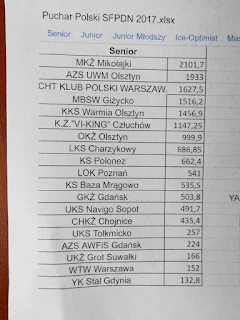 Puchar Polski SFPDN 2017.xlsx
Senior Junior Junior Młodszy Ice-Optimist
Senior
MKŻ Mikołajki 2101,7
AZS UWM Olsztyn 1933
CHT KLUB POLSKI WARSZAW 1627,5
MBSW Giżycko 1516,2
KKS Warmia Olsztyn 1456,9
K.Ż."VI-KING" Człuchów 1147,25
OKŻ Olsztyn 999,9
LKS Charzykowy 686,85
KS Polonez 662,4
LOK Poznań 541
KS Baza Mrągowo 535,5
GKŻ Gdańsk 503,8 YA
UKS Navigo Sopot 491,7
CHKŻ Chojnice 435,4
UKS Tolkmicko 257
AZS AWFiS Gdańsk 224
UKŻ Grot Suwałki 166
WTW Warszawa 152
YK Stal Gdynia 132,8